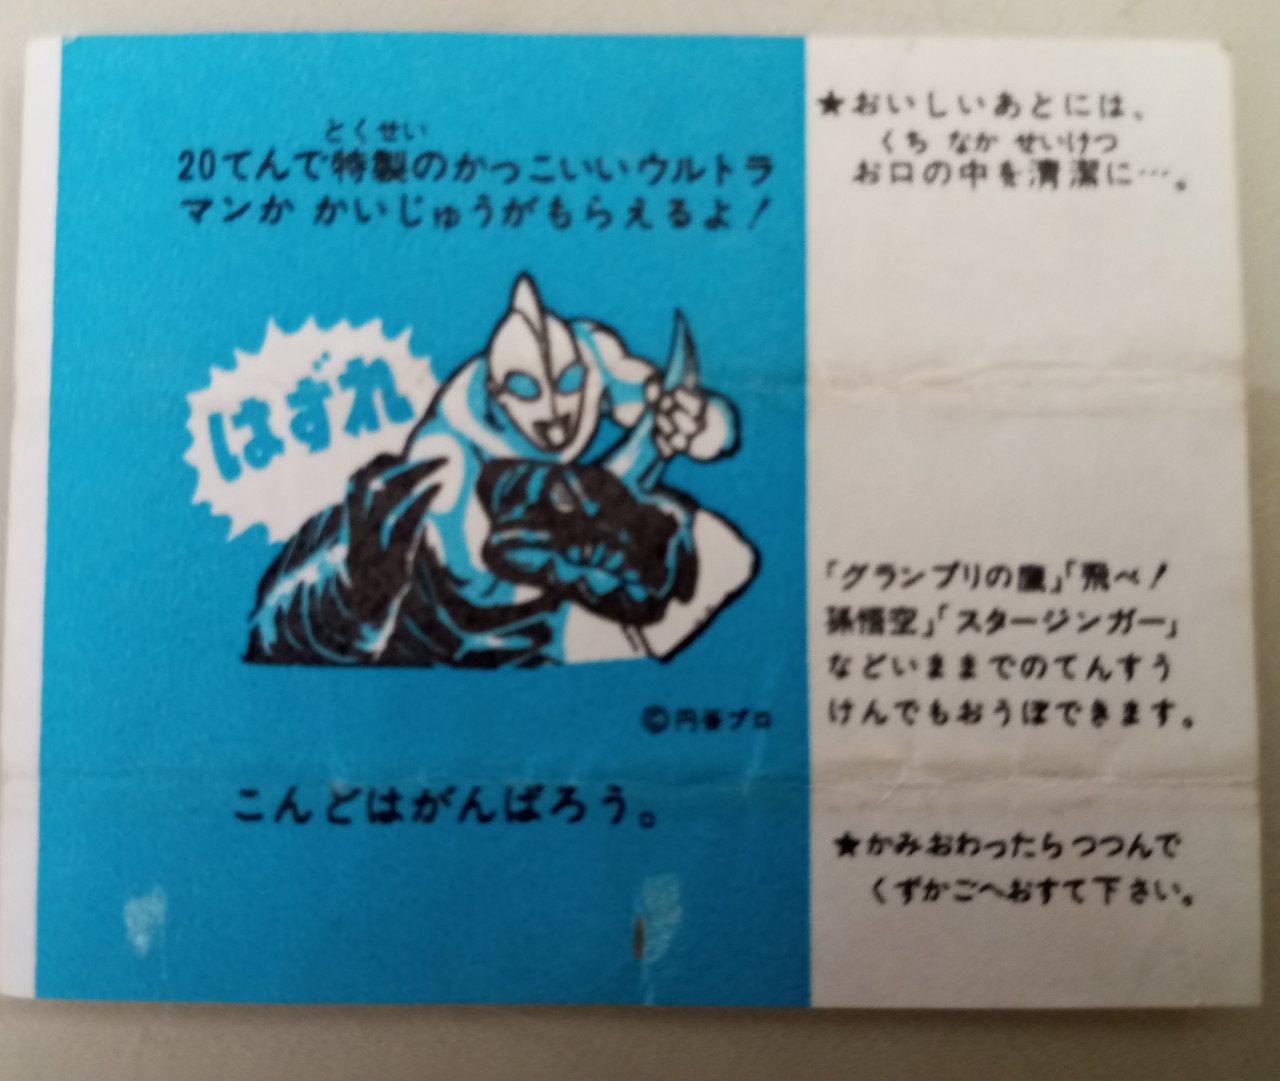 とくせい
20てんで特製のかっこいいウルトラ
マンか かいじゅうがもらえるよ!
はずれ
©円谷プロ
こんどはがんばろう。
★おいしいあとには、
くち なか せいけつ
お口の中を清潔に…。
「グランプリの鷹」「飛べ!
孫悟空」「スタージンガー」
などいままでのてんすう
けんでもおうぼできます。
★かみおわったらつつんで
くずかごへおすて下さい。